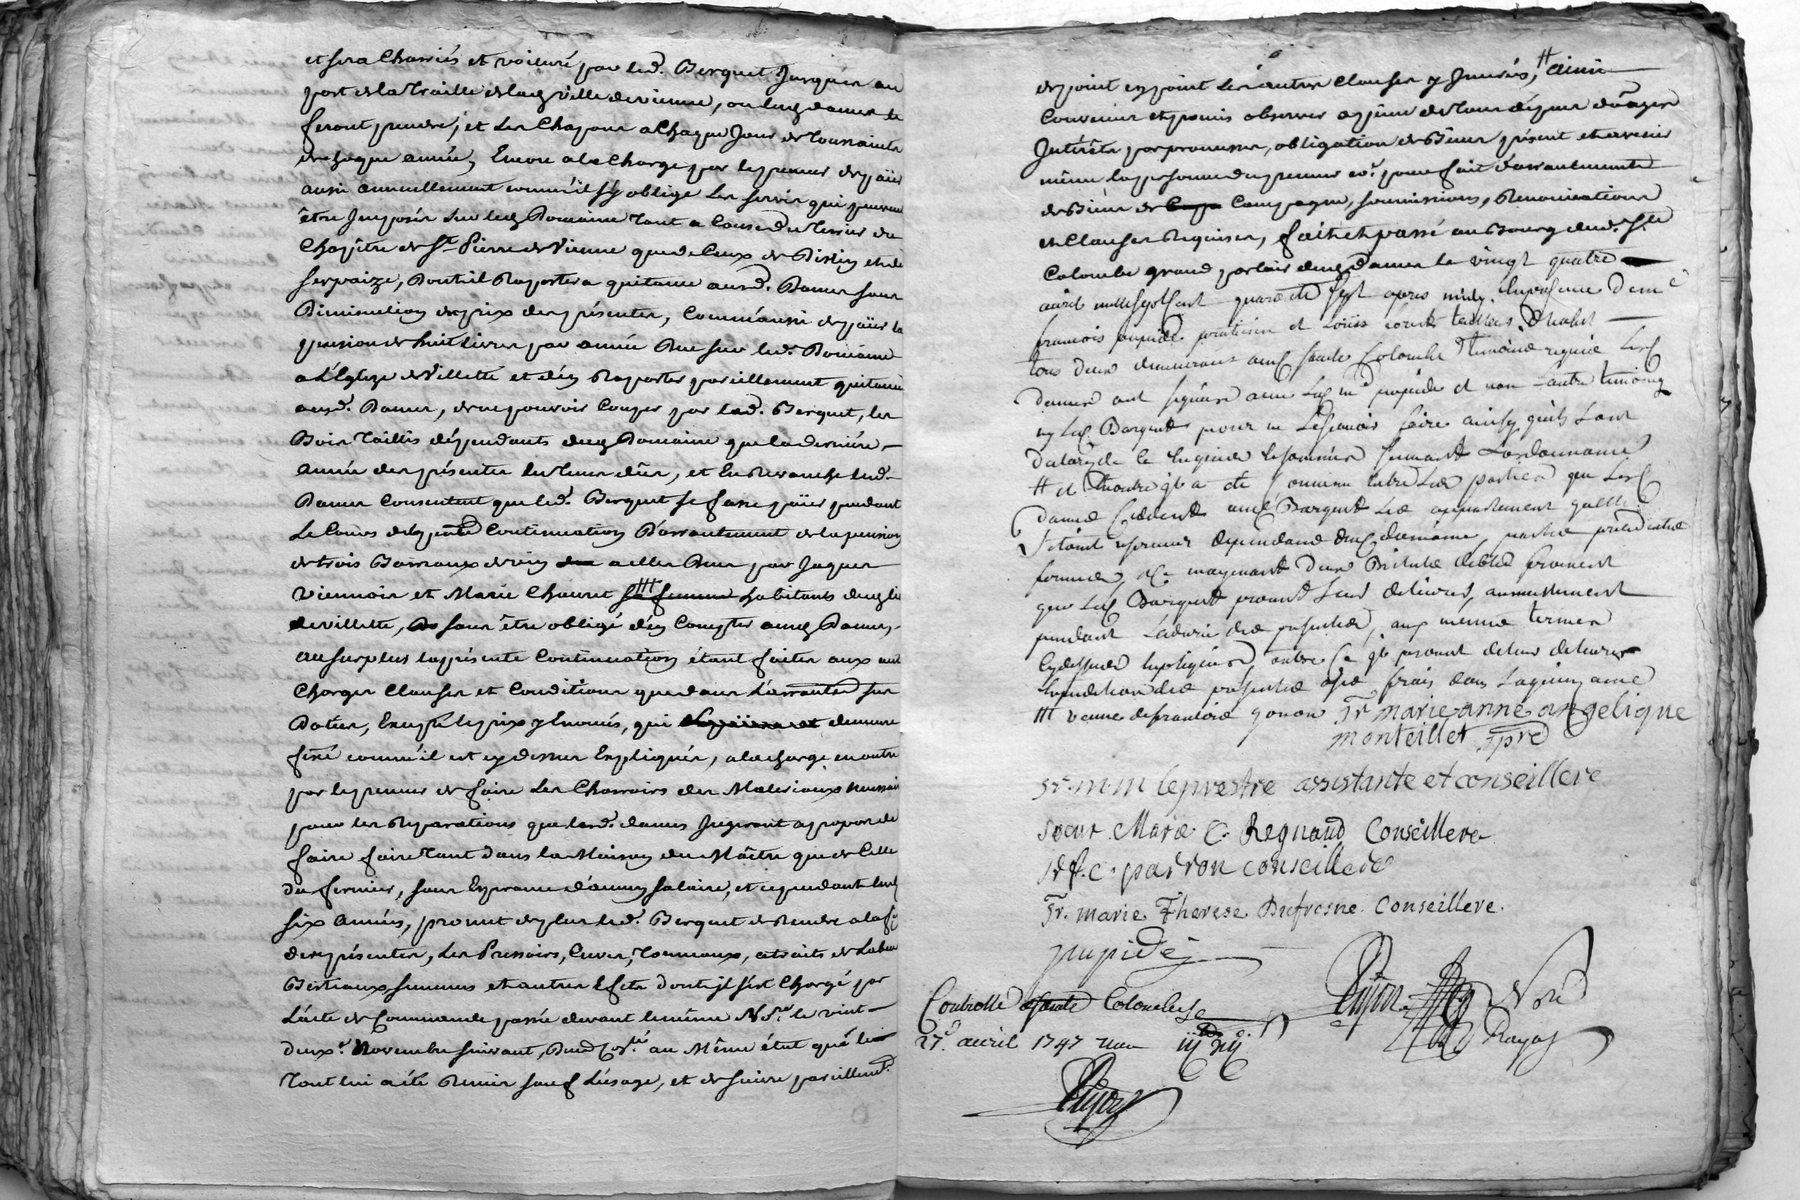 et sera Charriés et voituré par led. Berquet Jusques au
port de la Traille de lad. ville de vienne, ou lesd. dames le
feront prendre, et les Chapons a Chaque Jour de Toussaints
de chaque année, Encore a la Charge par le preneur de païer
aussi annuellement comme il s'y oblige Les servis qui peuvent
être Imposés sur led. Domaine tant a Cause du Terrier du
Chapitre de St. Pierre de Vienne que de Ceux de et de
Serpaize, Dont il Raportera quitance ausd. Dames sans
Diminution du prix des présentes, Comme aussi de païer la
pension de huit livres par année Due sur led. Domaine
a L'Eglize de Villette et d'en Raporter pareillement quitance
ausd. Dames, de ne pouvoir Couper par led. Berquet, les
Bois Taillis dépendants dud. Domaine que la derniére
année des présentes en tems dûs, et En Revanche lesd.
Dames Consentent que led. Berquet se fasse païer pendant
Le Cours de la présente Continuation D'arrantement de la pension
de trois Barraux de vin a elles Due par Jaques
Viennois et Marie Chauvet sa femme habitants dud. lieu
de villette, sans être obligé d'en Compter ausd. Dames,
au surplus la présente Continuation étant faite aux mêmes
Charges Clauses et Conditions que dans L'arrantement sus
Datté, Excepté le prix y Enoncé, qui demeure
fixé comme il est cy dessus Expliqué, a la charge en outre
par le preneur de faire Les Charrois des Materiaux necessaires
pour les Reparations que lesd. dames Jugeront a propos de
faire faire tant dans la Maison du Maître que de Celle
du fermier, sans Esperance d'aucun salaire, et ce pendant lesd.
six années, promet de plus led. Berquet de Rendre a la fin
des présentes, Les Pressoirs, Cuves, Tonneaux, attraits de Labour
Bestiaux semences et autres Effets dont il s'est Chargé par
L'acte de Commande passé devant le même Nore. le vint
deuxe. Novembre suivant, au Même état que le
tout lui a été Remis sauf L'usage, et de suivre pareillemt.
de point en point Les autres Clauses y Inserées, # ainsi
Convenu et promis observer a peine de tous dépens domages
Intérêts par promesse, obligation de Biens présent et avenir
même la personne du preneur pour fait d'arrantement
de Biens de Campagne, soumissions, Renonciations
et Clauses Requises, fait et passé au Bourg dud. Ste.
Colombe grand parloir desd. Dames le vingt quatre
avril mille sept Cent quarante sept apres midy. En presence de me.
francois pupide praticien et Loüis
tous deux demeurant aud. sainte Colombe temoins requis Lesd.
dames ont signées avec led. me. pupide et non L'autre temoing
ny led. Barquet pour ne Lesçavoir faire ainsy qu'ils l'ont
declaré de ce enquis et sommés suivant Lordonnance
# et Encore a eté Convenu entre Les parties que Lesd.
dames Cedent aud. Barquet Les appartement qu'elles
s'etoint reservées dependans dud. domaine, par le precedente
ferme, moyenant deux Bichets de bled froment
que led. Barquet promet Leur delivrer, annuellement
pendant La durée des presentes, aux memes termes
cydessus Expliqués, outre Ce promet de leur delivrer
Expedition des presentes a ses frais dans La quinzaine
### veuve de francois gonon Sr. marie anne angelique
monteillet spre
Sr. m m leprestre assistante et conseillere
soeur Marie C. Regnaud Conseillere
Sr f. c. parron conseillere
Sr. marie Therese Dufresne Conseillere.
pupide
Controllé a sainte Colombe le
27e. avril 1747